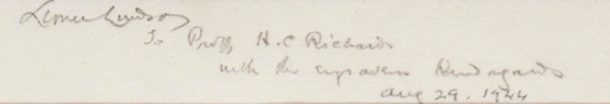 Lionel Lindsay
To Proff H. C Richards
with the engravers kind regards
Aug 29. 1944